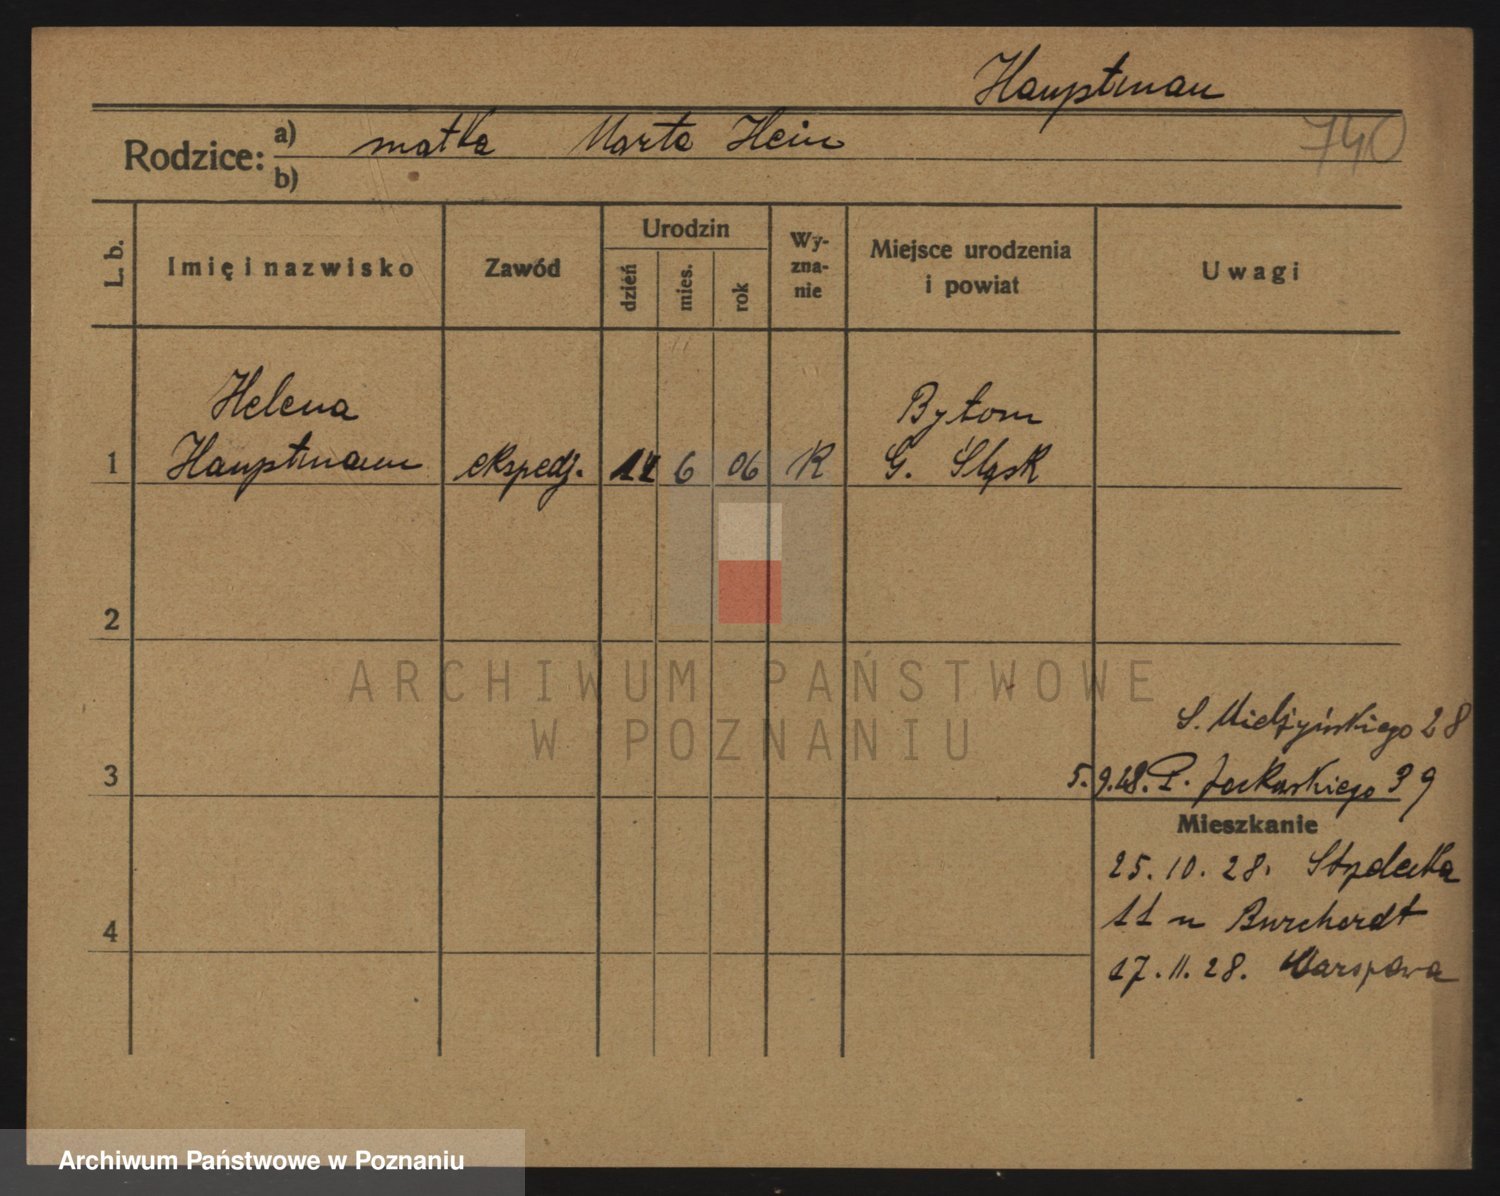 Hauptman
740
Rodzice: a) matka Marta Hein
b)
L. b.
Imię i nazwisko
Zawód
Urodzin
dzień
mies.
rok
Wy-
zna-
nie
Miejsce urodzenia
i powiat
Uwagi
Helena
Bytom
1 Hauptmann ekspedj. 6 06 R G. Śląsk
2
ARCHIWUM PAŃSTWOWE
W POZNANIU
S. Mielżyńskiego 28
3
5. 9. 28. P. 39
Mieszkanie
25. 10. 28.
4
11 u Burchardt
17. 11. 28. Warszawa
Archiwum Państwowe w Poznaniu